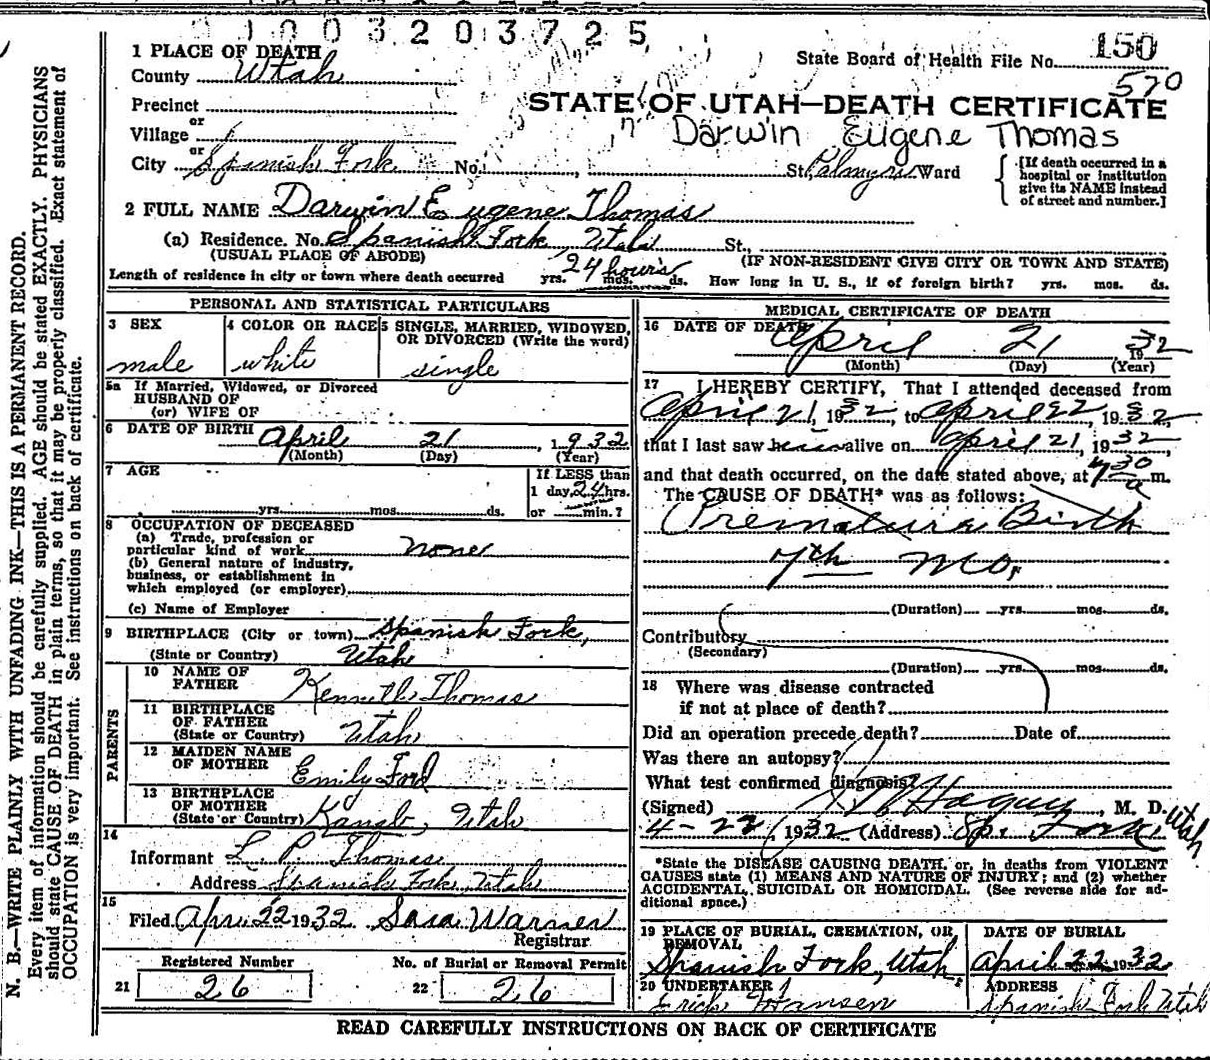 1003203725
1 PLACE OF DEATH
State Board of Health File No. 150
County Utah
570
Precinct
STATE OF UTAH—DEATH CERTIFICATE
or
Village
Darwin Eugene Thomas
or
City Spanish Fork No. St. Palmyra Ward
[If death occurred in a
hospital or institution
give its NAME instead
of street and number.]
2 FULL NAME Darwin Eugene Thomas
(a) Residence. No. Spanish Fork, Utah St.,
(USUAL PLACE OF ABODE) (IF NON-RESIDENT GIVE CITY OR TOWN AND STATE)
Length of residence in city or town where death occurred yrs. 24 hours mos. ds. How long in U. S., if of foreign birth? yrs. mos. ds.
PERSONAL AND STATISTICAL PARTICULARS
3 SEX
male
4 COLOR OR RACE
white
5 SINGLE, MARRIED, WIDOWED,
OR DIVORCED (Write the word)
single
5a If Married, Widowed, or Divorced
HUSBAND OF
(or) WIFE OF
6 DATE OF BIRTH April 21, 1932
(Month) (Day) (Year)
7 AGE
yrs. mos. ds.
If LESS than
1 day, 24 hrs.
or min.?
8 OCCUPATION OF DECEASED
(a) Trade, profession or
particular kind of work none
(b) General nature of industry,
business, or establishment in
which employed (or employer)
(c) Name of Employer
9 BIRTHPLACE (City or town) Spanish Fork,
(State or Country) Utah
PARENTS
10 NAME OF
FATHER Kenneth Thomas
11 BIRTHPLACE
OF FATHER
(State or Country) Utah
12 MAIDEN NAME
OF MOTHER Emily Ford
13 BIRTHPLACE
OF MOTHER
(State or Country) Kanab, Utah
14
Informant L. P. Thomas
Address Spanish Fork, Utah
15
Filed Apr. 22 1932 Sara Warner
Registrar
Registered Number
21 26
No. of Burial or Removal Permit
22 26
MEDICAL CERTIFICATE OF DEATH
16 DATE OF DEATH
April 21 1932
(Month) (Day) (Year)
17 I HEREBY CERTIFY, That I attended deceased from
April 21, 1932, to April 22, 1932,
that I last saw him alive on April 21, 1932,
and that death occurred, on the date stated above, at 7 30 a m.
The CAUSE OF DEATH* was as follows:
Premature Birth
7th Mo,
(Duration) yrs. mos. ds.
Contributory
(Secondary)
(Duration) yrs. mos. ds.
18 Where was disease contracted
if not at place of death?
Did an operation precede death? Date of
Was there an autopsy?
What test confirmed diagnosis?
(Signed) Hagan, M. D.
4-22, 1932 (Address) Sp. Fork, Utah
*State the DISEASE CAUSING DEATH, or, in deaths from VIOLENT
CAUSES state (1) MEANS AND NATURE OF INJURY; and (2) whether
ACCIDENTAL, SUICIDAL OR HOMICIDAL. (See reverse side for ad-
ditional space.)
19 PLACE OF BURIAL, CREMATION, OR
REMOVAL
Spanish Fork, Utah.
DATE OF BURIAL
April 22 1932
20 UNDERTAKER
Erick Hansen
ADDRESS
Spanish Fork Utah
READ CAREFULLY INSTRUCTIONS ON BACK OF CERTIFICATE
N. B.—WRITE PLAINLY WITH UNFADING INK—THIS IS A PERMANENT RECORD.
Every item of information should be carefully supplied. AGE should be stated EXACTLY. PHYSICIANS
should state CAUSE OF DEATH in plain terms, so that it may be properly classified. Exact statement of
OCCUPATION is very important. See instructions on back of certificate.